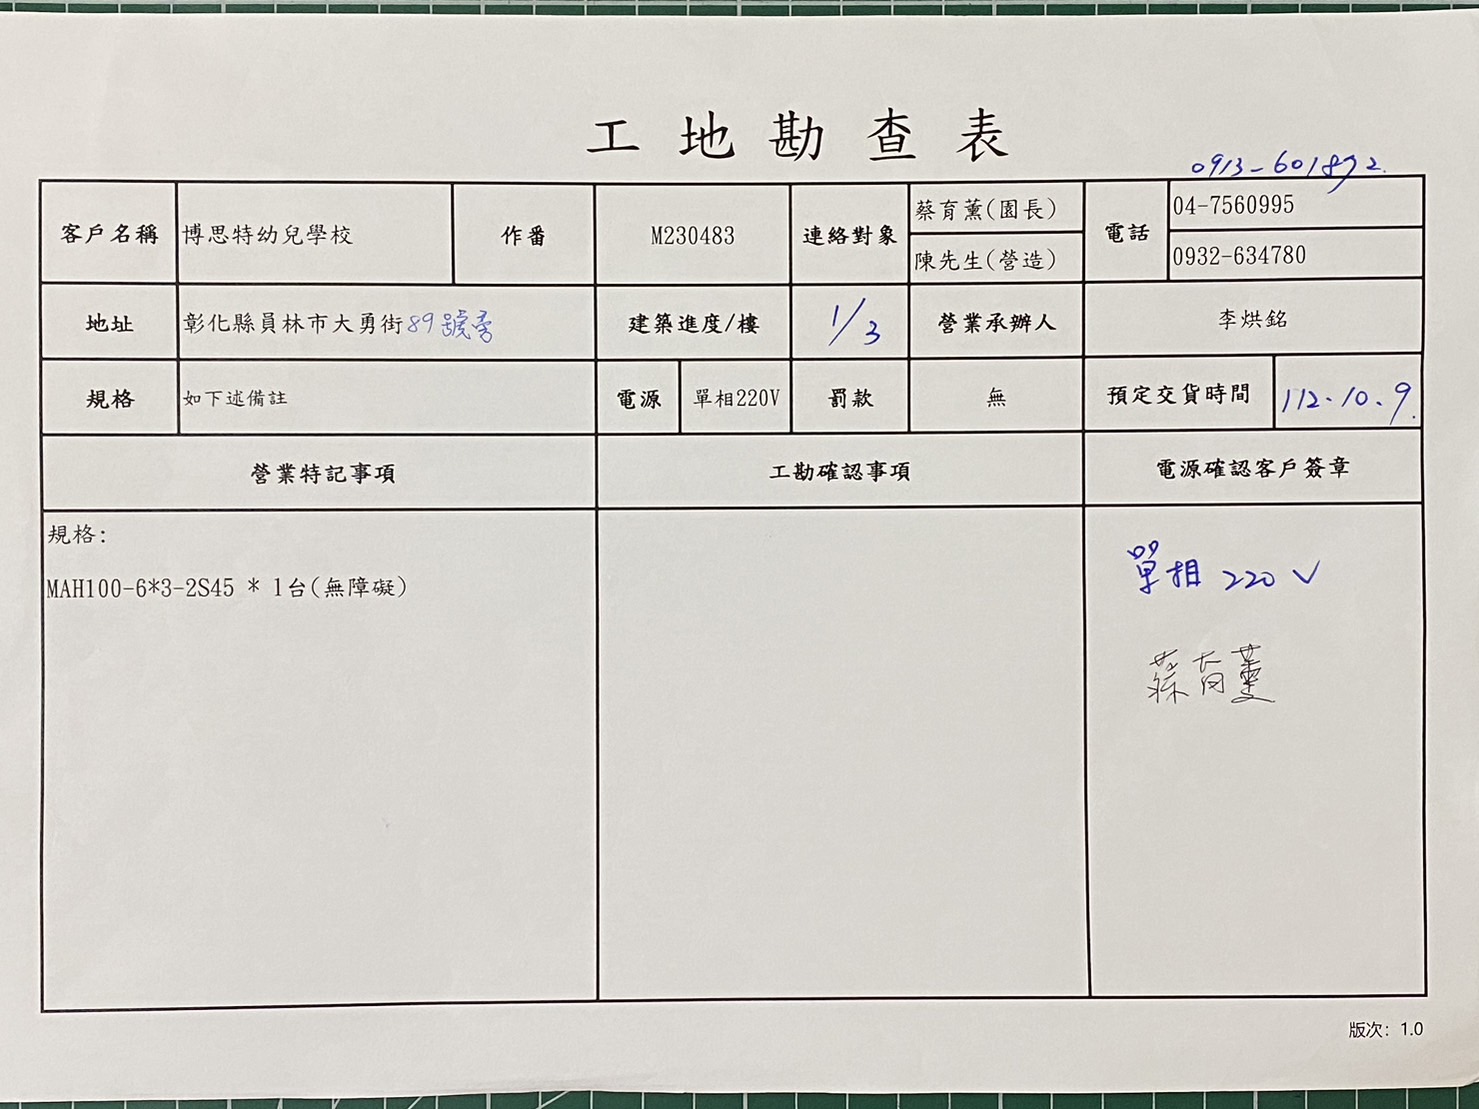 工地勘查表
0913-601872
客戶名稱 博思特幼兒學校 作番 M230483 連絡對象 蔡育薰(園長) 電話 04-7560995
陳先生(營造) 0932-634780
地址 彰化縣員林市大勇街89號旁 建築進度/樓 1/3 營業承辦人 李烘銘
規格 如下述備註 電源 單相220V 罰款 無 預定交貨時間 112.10.9.
營業特記事項 工勘確認事項 電源確認客戶簽章
規格:
MAH100-6*3-2S45 * 1台(無障礙)
單相 220 V
蔡育薰
版次: 1.0